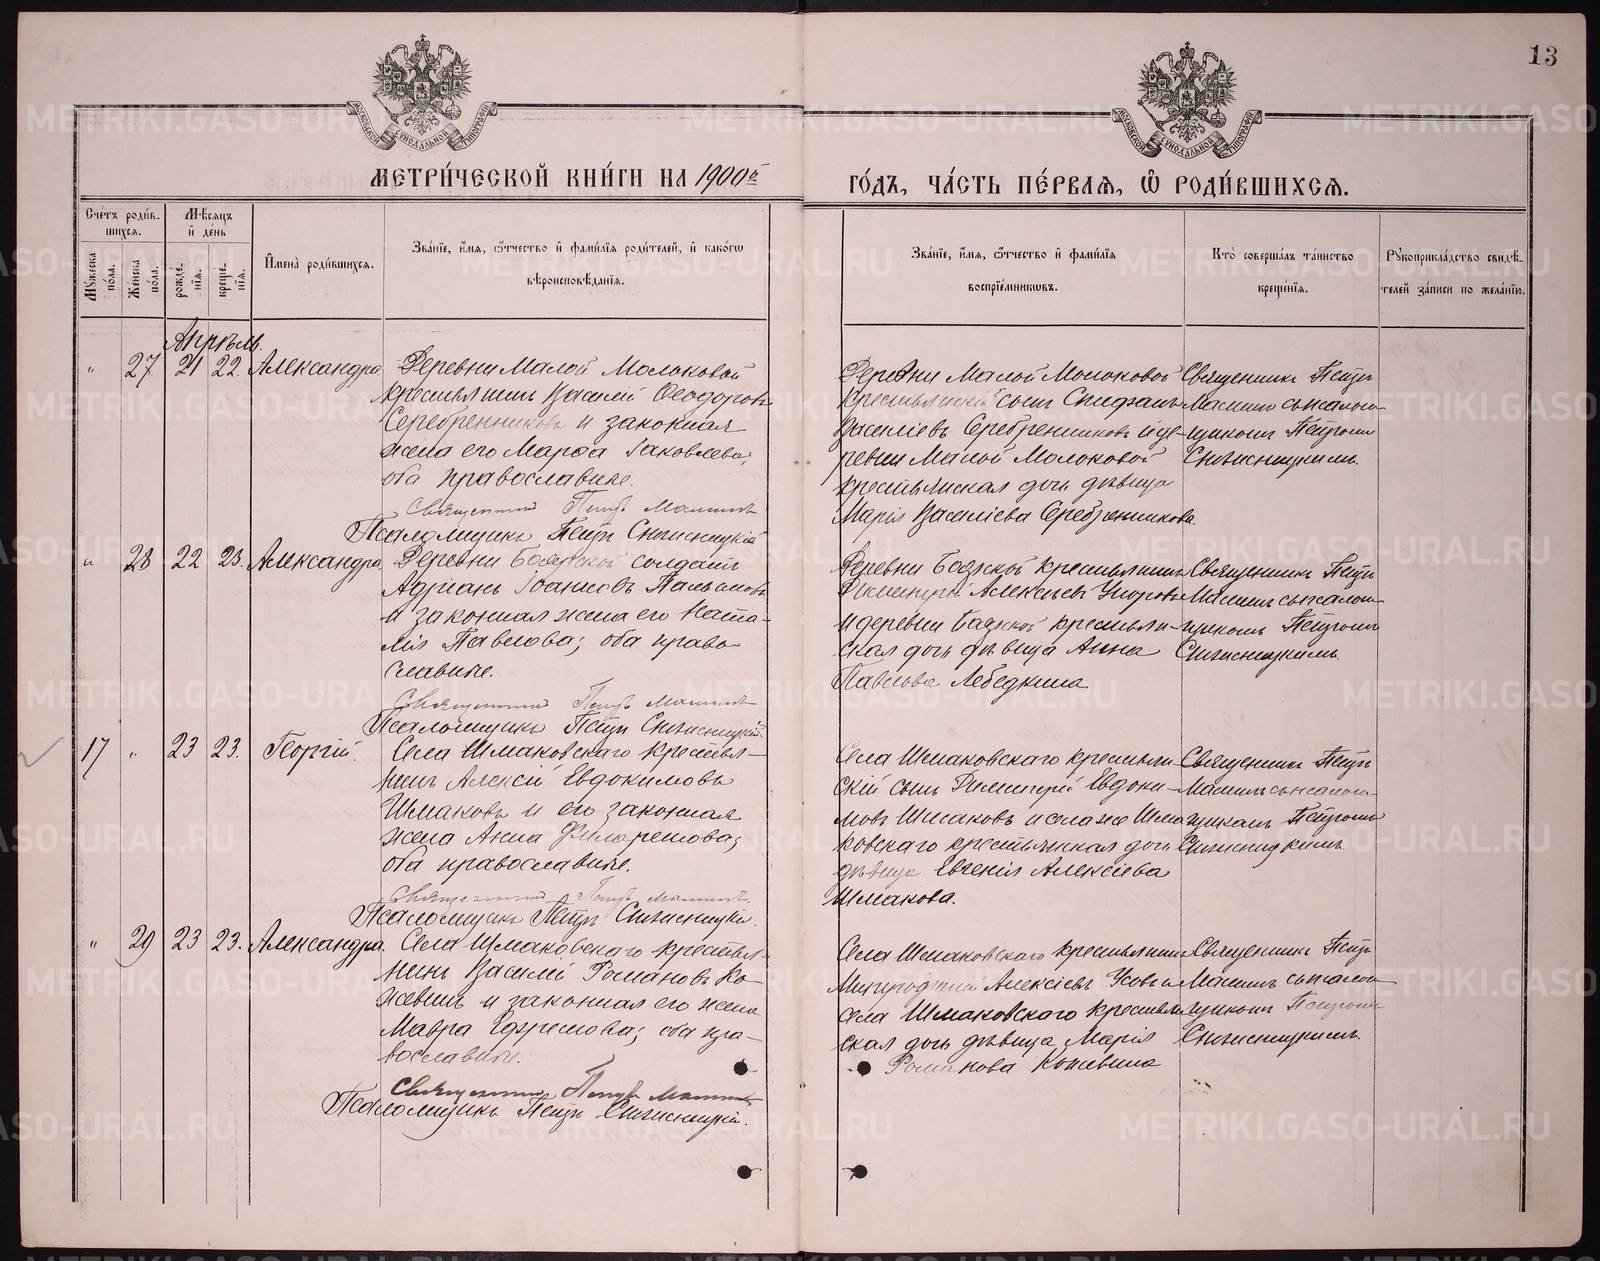 13
МОСКОВСКОЙ СѴНОДАЛЬНОЙ ТИПОГРАФІИ
МОСКОВСКОЙ СѴНОДАЛЬНОЙ ТИПОГРАФІИ
МЕТРИ́ЧЕСКОЙ КНИ́ГИ НА 1900й
ГО́ДЪ, ЧА́СТЬ ПЕ́РВАѦ, Ѡ҆ РОДИ́ВШИХСѦ.
Сче́тъ роди́в-
шихсѧ.
Мѣ́сѧцъ
и҆ де́нь
Му́жеска по́ла.
Же́нска по́ла.
рожде́-
нїѧ.
креще́-
нїѧ.
И҆мена̀ роди́вшихсѧ.
Зва́нїе, и҆́мѧ, ѻ҆́тчество и҆ фами́лїѧ роди́телей, и҆ како́гѡ
вѣроисповѣ́данїѧ.
Зва́нїе, и҆́мѧ, ѻ҆́тчество и҆ фами́лїѧ
воспрїе́мникѡвъ.
Кто̀ соверша́лъ та́инство
креще́нїѧ.
Рꙋкоприкла́дство свидѣ́-
телей за́писи по жела́нїю.
Апрѣль.
" 27 21 22. Александра
Деревни Малой Молоковой
крестьянинъ Василій Ѳеодоровъ
Серебренниковъ и законная
жена его Марѳа Іаковлева,
оба православные.
Священникъ Петръ Маминъ
Псаломщикъ Петръ
Деревни Малой Молоковой
крестьянскій сынъ Стефанъ
Василіевъ Серебренниковъ и де-
ревни Малой Молоковой
крестьянская дочь дѣвица
Марія Василіева Серебренникова.
Священникъ Петръ
Маминъ съ псалом-
щикомъ Петромъ
" 28 22 23. Александра
Деревни Боярской солдатъ
Адріанъ Іоанновъ
и законная жена его Ната-
лія Павлова; оба право-
славные.
Священникъ Петръ Маминъ
Псаломщикъ Петръ
Деревни Боярской крестьянинъ
Димитрій Алексіевъ
и деревни Боярской крестьян-
ская дочь дѣвица Анна
Павлова Лебедкина
Священникъ Петръ
Маминъ съ псалом-
щикомъ Петромъ
17 " 23 23. Георгій.
Села Шмаковскаго крестья-
нинъ Алексій Евдокимовъ
Шмаковъ и его законная
жена Анна Филаретова;
оба православные.
Священникъ Петръ Маминъ
Псаломщикъ Петръ
Села Шмаковскаго крестьян-
скій сынъ Димитрій Евдоки-
мовъ Шмаковъ и села же Шма-
ковскаго крестьянская дочь
дѣвица Евгенія Алексіева
Шмакова.
Священникъ Петръ
Маминъ съ псалом-
щикомъ Петромъ
" 29 23 23. Александра
Села Шмаковскаго крестья-
нинъ Василій Романовъ Ко-
жевинъ и законная его жена
Мавра Ефремова; оба пра-
вославные.
Священникъ Петръ Маминъ
Псаломщикъ Петръ
Села Шмаковскаго крестьянинъ
Алексіевъ Усовъ и
села Шмаковскаго крестьян-
ская дочь дѣвица Марія
Романова Кожевина
Священникъ Петръ
Маминъ съ псалом-
щикомъ Петромъ
METRIKI.GASO-URAL.RU